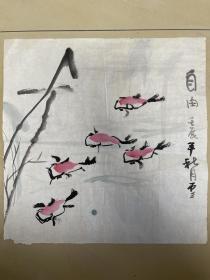 自由
壬辰年秋月